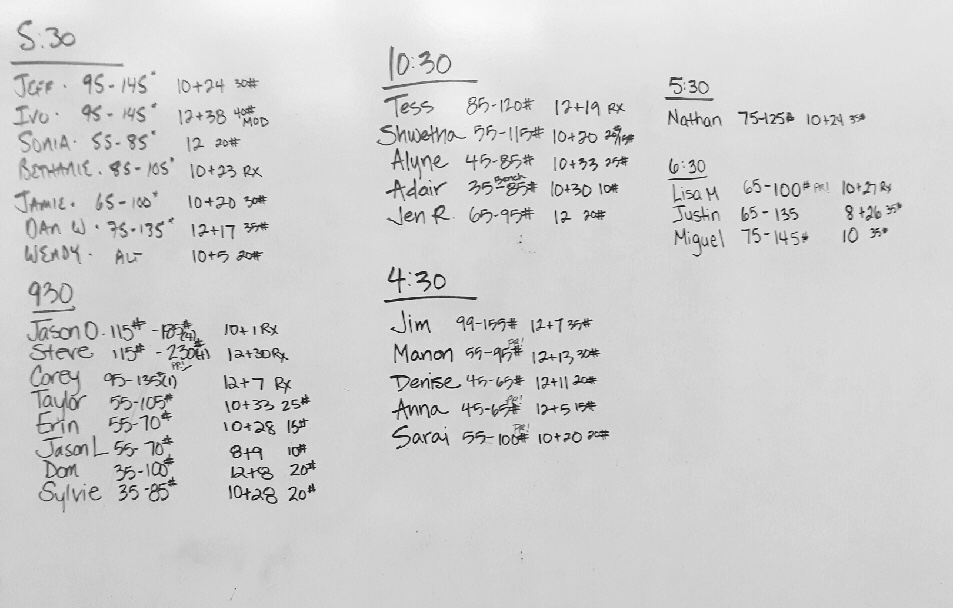 5:30
Jeff. 95-145# 10+24 30#
Ivo. 95-145# 12+38 40# MOD
Sonia. 55-85# 12 20#
Bethanie. 85-105# 10+23 RX
Jamie. 65-100# 10+20 30#
Dan W. 75-135# 12+17 35#
Wendy. ALT 10+5 20#
930
Jason O. 115# - 185#(4) 10+1 RX
Steve 115# - 230#(1) 12+30 RX
Corey 95-135#(1) PR! 12+7 RX
Taylor 55-105# 10+33 25#
Erin 55-70# 10+28 15#
Jason L 55-70# 8+9 10#
Dom 35-100# 12+8 20#
Sylvie 35-85# 10+28 20#
10:30
Tess 85-120# 12+19 RX
Shwetha 55-115# 10+20
Alyne 45-85# 10+33 25#
Adair 35-85# Bench 10+30 10#
Jen R. 65-95# 12 20#
4:30
Jim 99-155# 12+7 35#
Manon 55-95# PR! 12+13 30#
Denise 45-65# 12+11 20#
Anna 45-65# PR! 12+5 15#
Sarai 55-100# PR! 10+20 20#
5:30
Nathan 75-125# 10+24 35#
6:30
Lisa M 65-100# PR! 10+27 RX
Justin 65-135 8+26 35#
Miguel 75-145# 10 35#